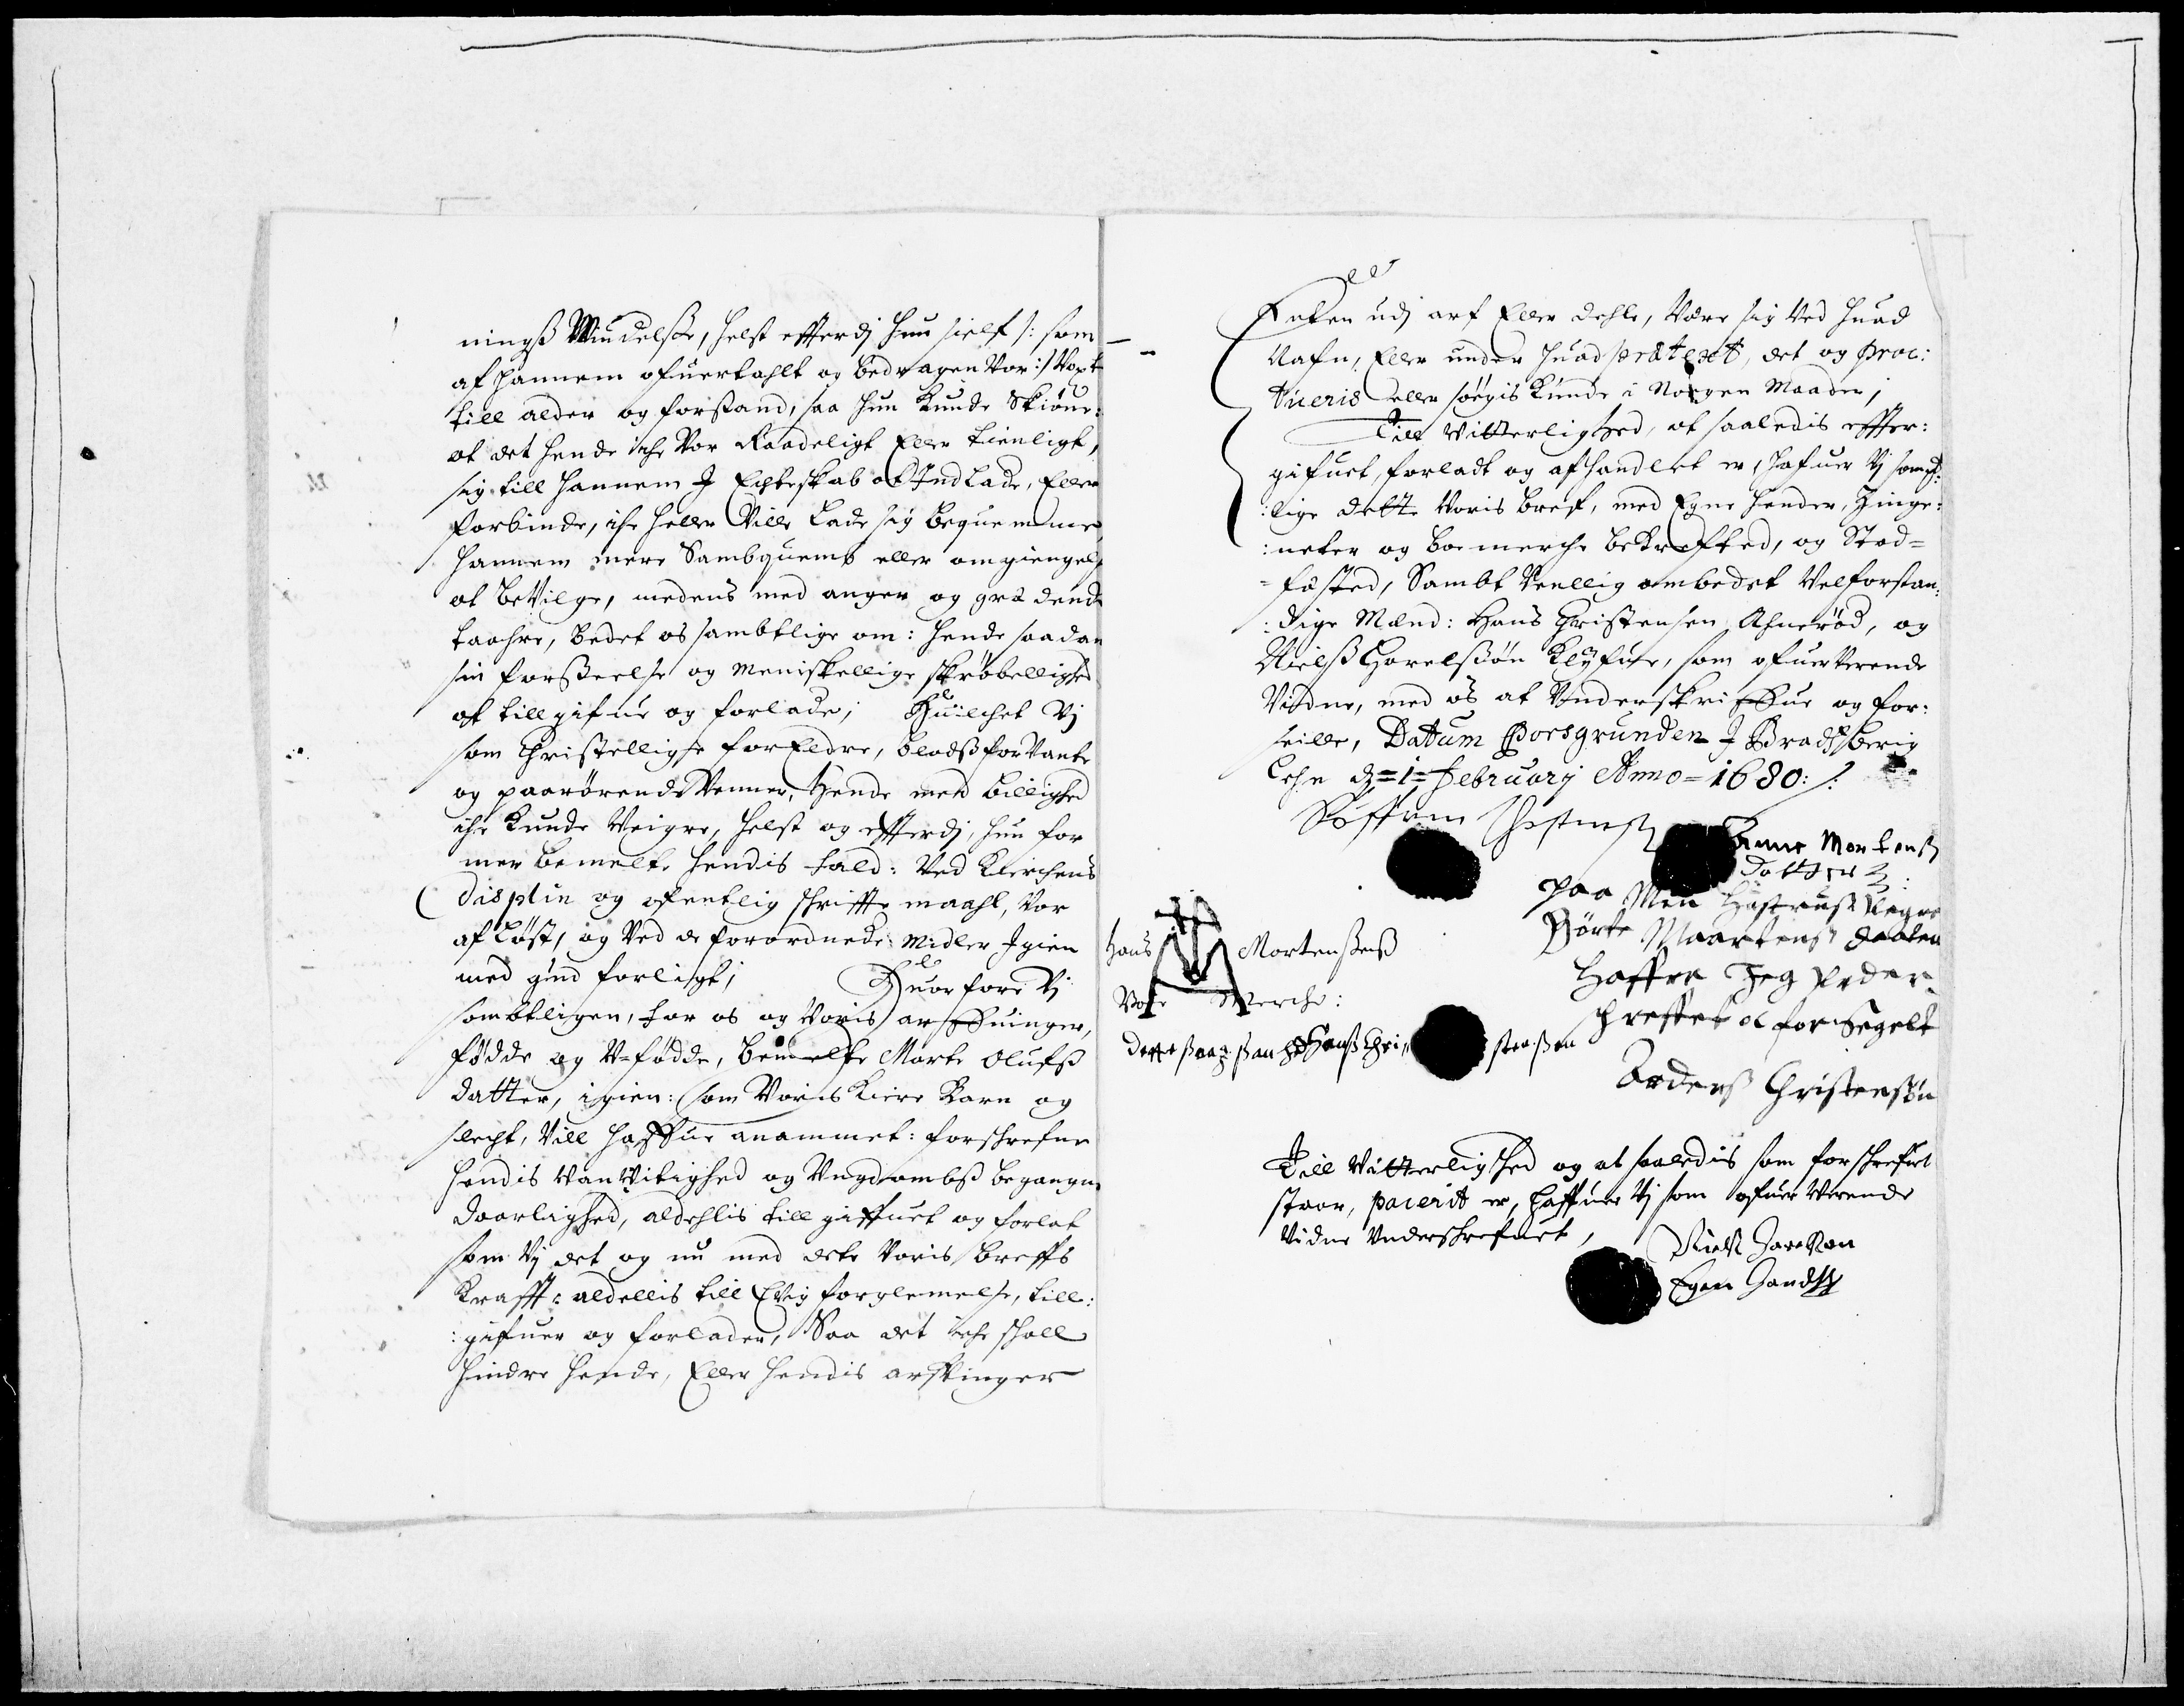 ningß Windelsße, helst effterdj hun sielf /: som
af hannem ofuertahlt og bedragen Vor :/ Voxt
till alder og forstand, saa hun kunde Skiøne:
at det hende iche Vor Raadeligt Eller tienligt,
sig till hannem I Echteskab at Indlade, Eller
forbinde, iche heller Ville Lade sig beqvemme,
hannem mere Sambqvemb eller omgiengels
at beVilge, medens med anger og grædende
taahre, bedet os sambtlige om: hende saadan
sin forsseelse og Meniskellige skrøbellighed
at tillgifue og forlade; Huilchet Vj
som Christellighe forEldre, blodßforVante
og paarørende Venner, hende med billighed
iche kunde Veigre, helst og effterdj, hun for
mer bemelte hendis fald: Ved Kierchens
displin og ofentlig schriffte maahl, Vor
afløst, og Ved de forordnede Midler Igien
med gud forligt; Huorfore Vj
sambtligen, for os og Voris arffuinger,
fødde og V-fødde, bemelte Marte Olufß
datter, igien: som Voris kiere Barn og
slecht, Vill haffue anammet: forschrefne
hendis VanVitighed og Vngdombß begangne
daarlighed, aldehlis till giffuet og forlat
som Vj det og nu med dette Voris breffs
Krafft: aldellis till Evig forglemelse, till:
:gifuer og forlader, Saa det iche schall
hindre hende, Eller hendis arffinger
Enten udj arf Eller dehle, Være sig Ved huad
Nafn, Eller under huad prætext, det og proc:
tueris eller søgis kunde i Nogen Maader;
Till Vitterlighed, at saaledis effter:
gifuet, forladt og afhandlet er, hafuer Vj sampt:
:lige dette Voris bref, med Egne hender, Zinge:
:neter og boemerche bekrefted, og Stad=
=fæsted, Sambt Venllig ombedet Velforstan:
:dige Mænd: Hans Christensen Ahnerød, og
Nielß Harelßøn Klyfue, som ofuerVerende
Vidne, med os at Vnderskriffue og for:
seille, Datum Porsgrunden I Bradsberig
Lehn d=1= February Anno = 1680: /:
Anne Mortenß
datter
paa Min Høstruß Vegne
Børte Maartenß daater
Haffer Jeg Under
schreffuet oc forsegelt
Anderß Christensßøn
Hans Mortenßenß
Boe Merche:
Hanß Chri,, stensßen
Till Vitterligshed og at saaledis som forschrefuet
staar, pacerit er, haffuer Vj som ofuerVerende
Vidne Vnderschrefuet,
Egen Handsch